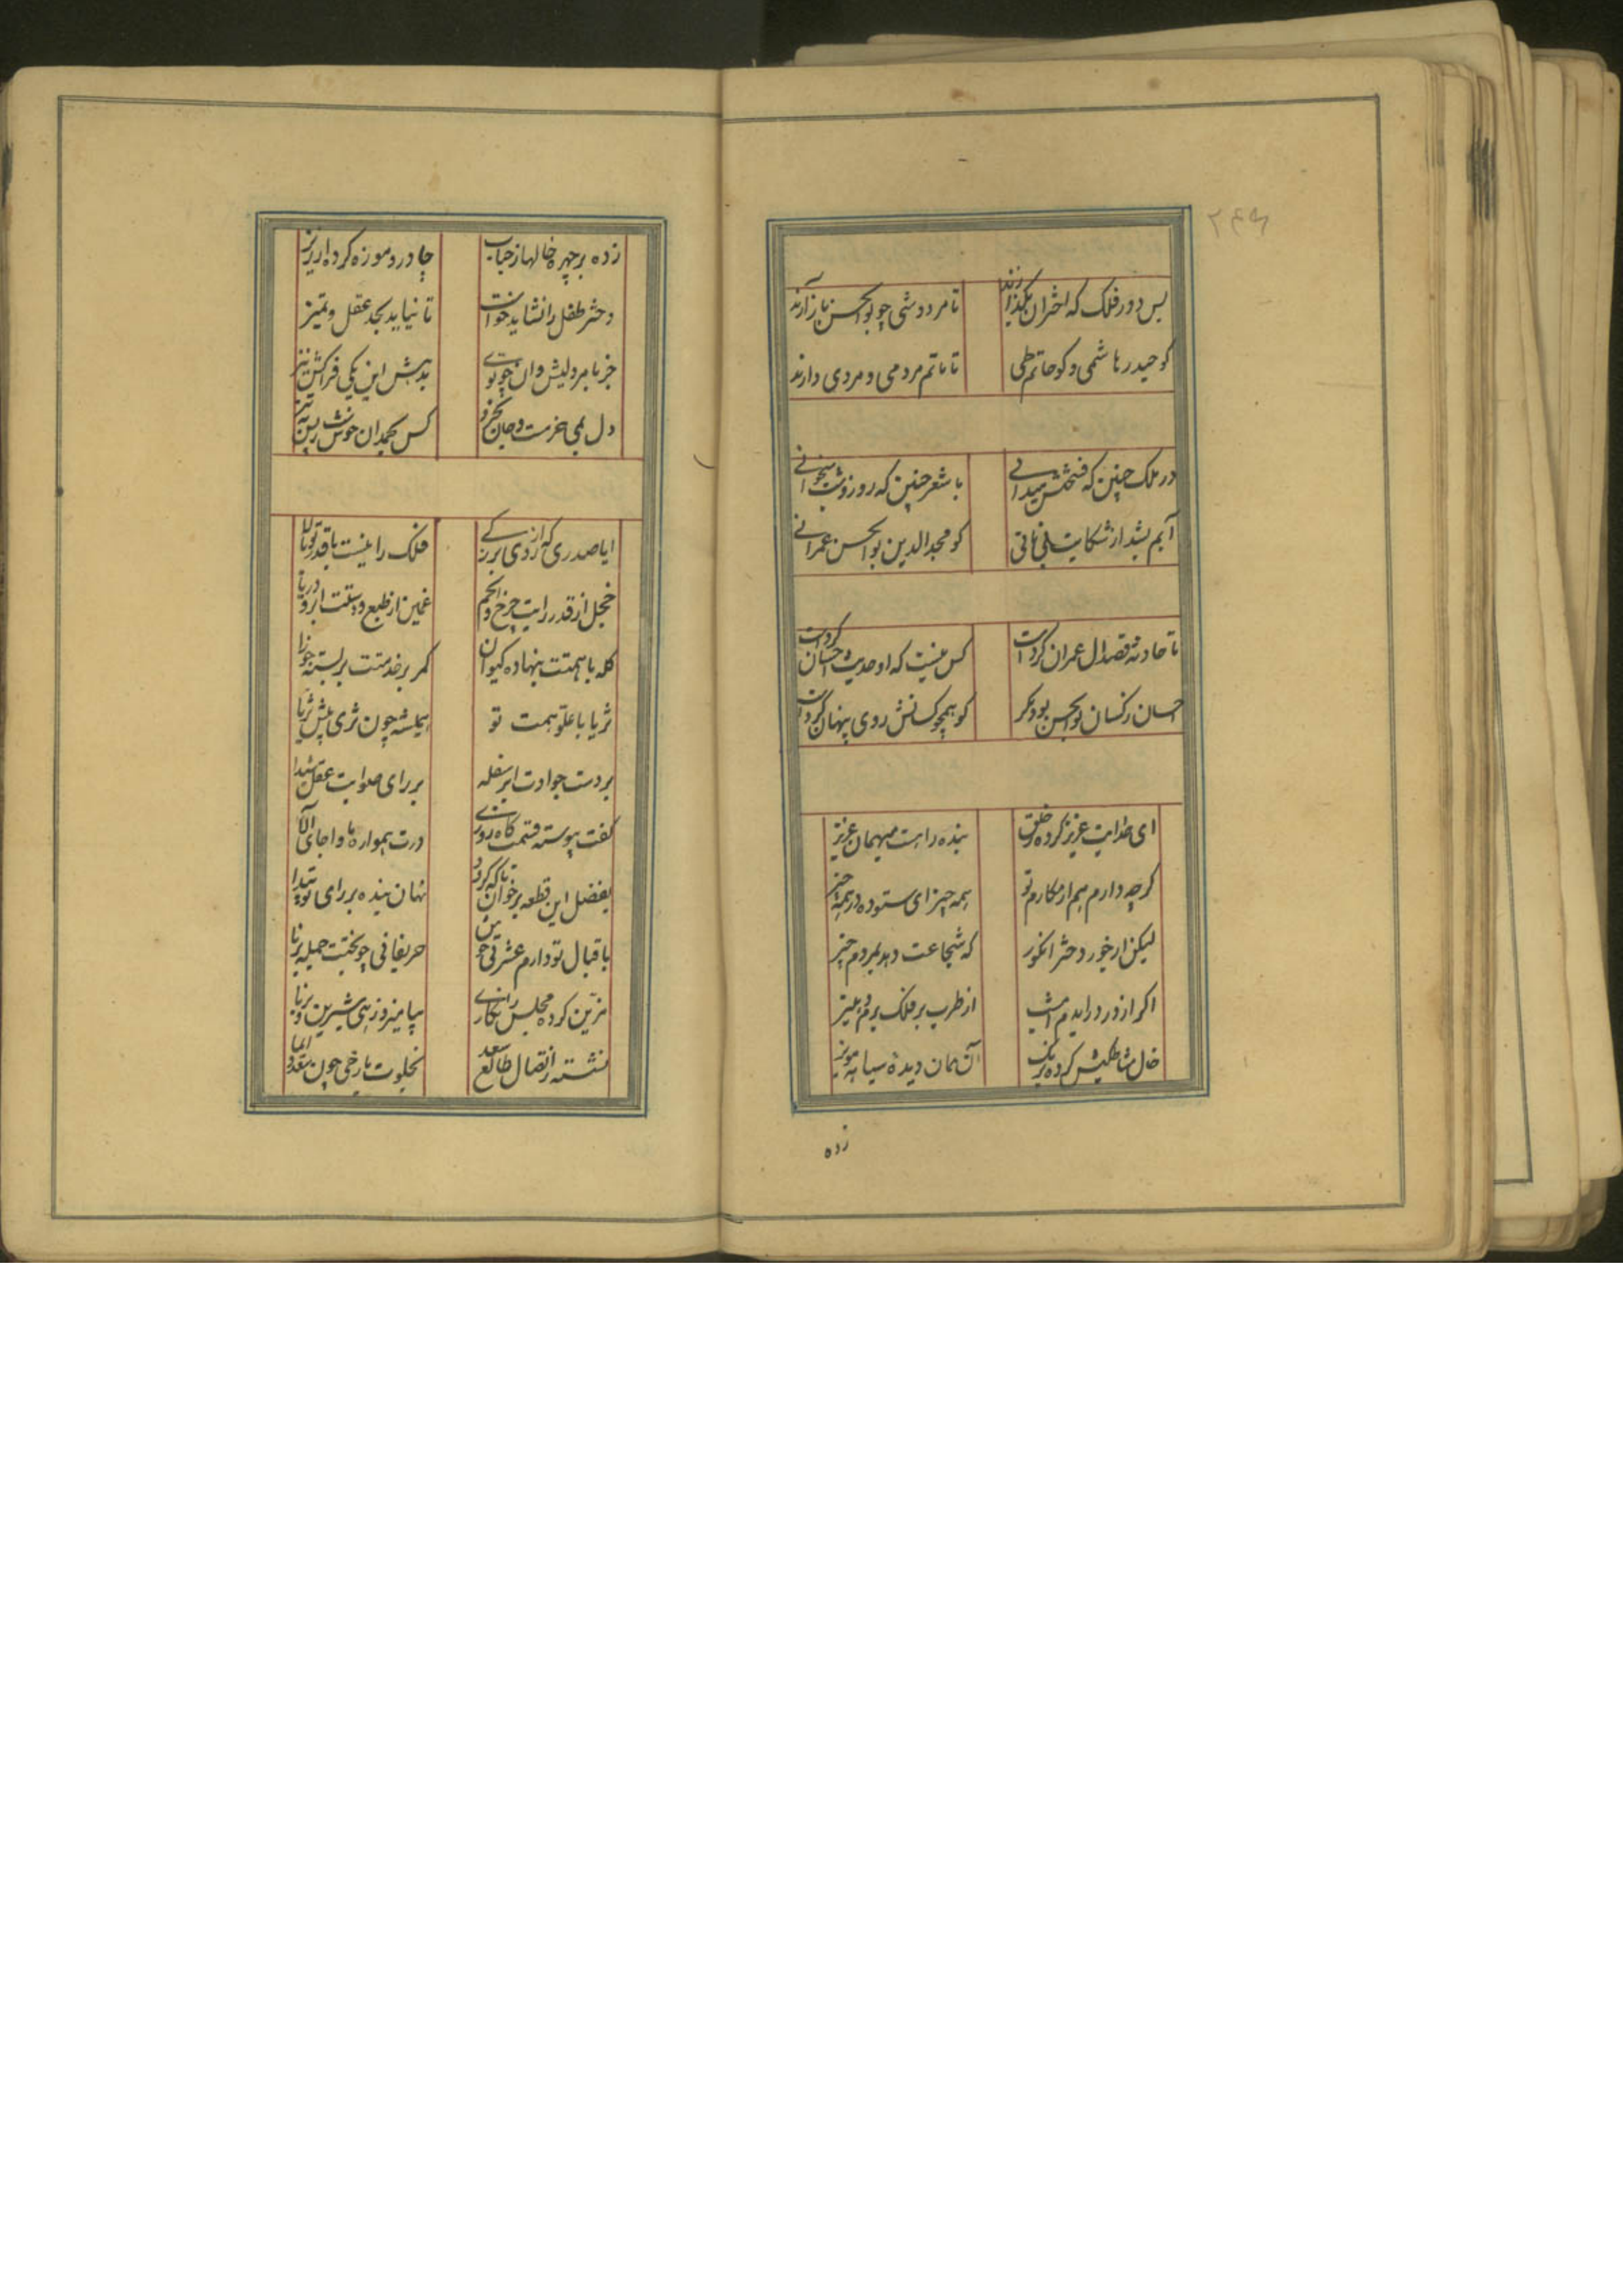 بس دور فلک که اختران بگذارند تا مرد وشی چو بوالحسن باز آرند
کو حیدر هاشمی و کو حاتم طی تا ماتم مردمی و مردی دارند
در ملک چنین که فسحتش میدانی با شعر چنین که روز و شب میخوانی
آبم بشد از شکایت بی نانی کو مجدالدین بوالحسن عمرانی
تا حادثه قصد ال عمران کردست کس نیست که او حدیث احسان کردست
احسان ز کسان بوالحسن بود مکر کو همچو کسانش روی پنهان کردست
ای خدایت عزیز کرده خلق بنده را هست میهمان عزیز
کرچه دارم هم از مکارم تو همه چیز ای ستوده در همه چیز
لیکن از خور دختر انکور که شجاعت دهد بمردم حیز
اکر از در درایدم امشب از طرب بر فلک برم دهلیز
خال مشاطکیش کرده برنک آسمان دیده سیاه مویز
زده
زده بر چهره خالها ز حباب چادر و موزه کرده از ریز
دختر طفل را نشاید خواست تا نیاید بحد عقل و تمیز
جز بامرد لیش وان چو بوی بدهش این یکی فراکش نیز
ایا صدری که از روی بزرکی فلک را نیست با قدر تو بالا
خجل از قدر رایت چرخ و انجم غمین از طبع و دستت ابر و دریا
کله با همتت بنهاده کیوان کمر بر خدمتت بر بسته جوزا
ثریا با علو همت تو همیشه چون ثری پیش ثریا
بر دست جوادت ابر سفله بر رای صوابت عقل شیدا
کفت پیوسته قسمت کاه روزی درت همواره با واجای آلا
بفضل این قطعه برخوان تا که کردد نهان بنده بر رای تو پیدا
باقبال تو دارم عشرتی خوش حریفانی چو بختت جمله برنا
مزین کرده مجلس را نکاری بپامیزد زهی شیرین و زیبا
نشسته ز اتصال طالع سعد بخلوت با رخی چون سعد اسما